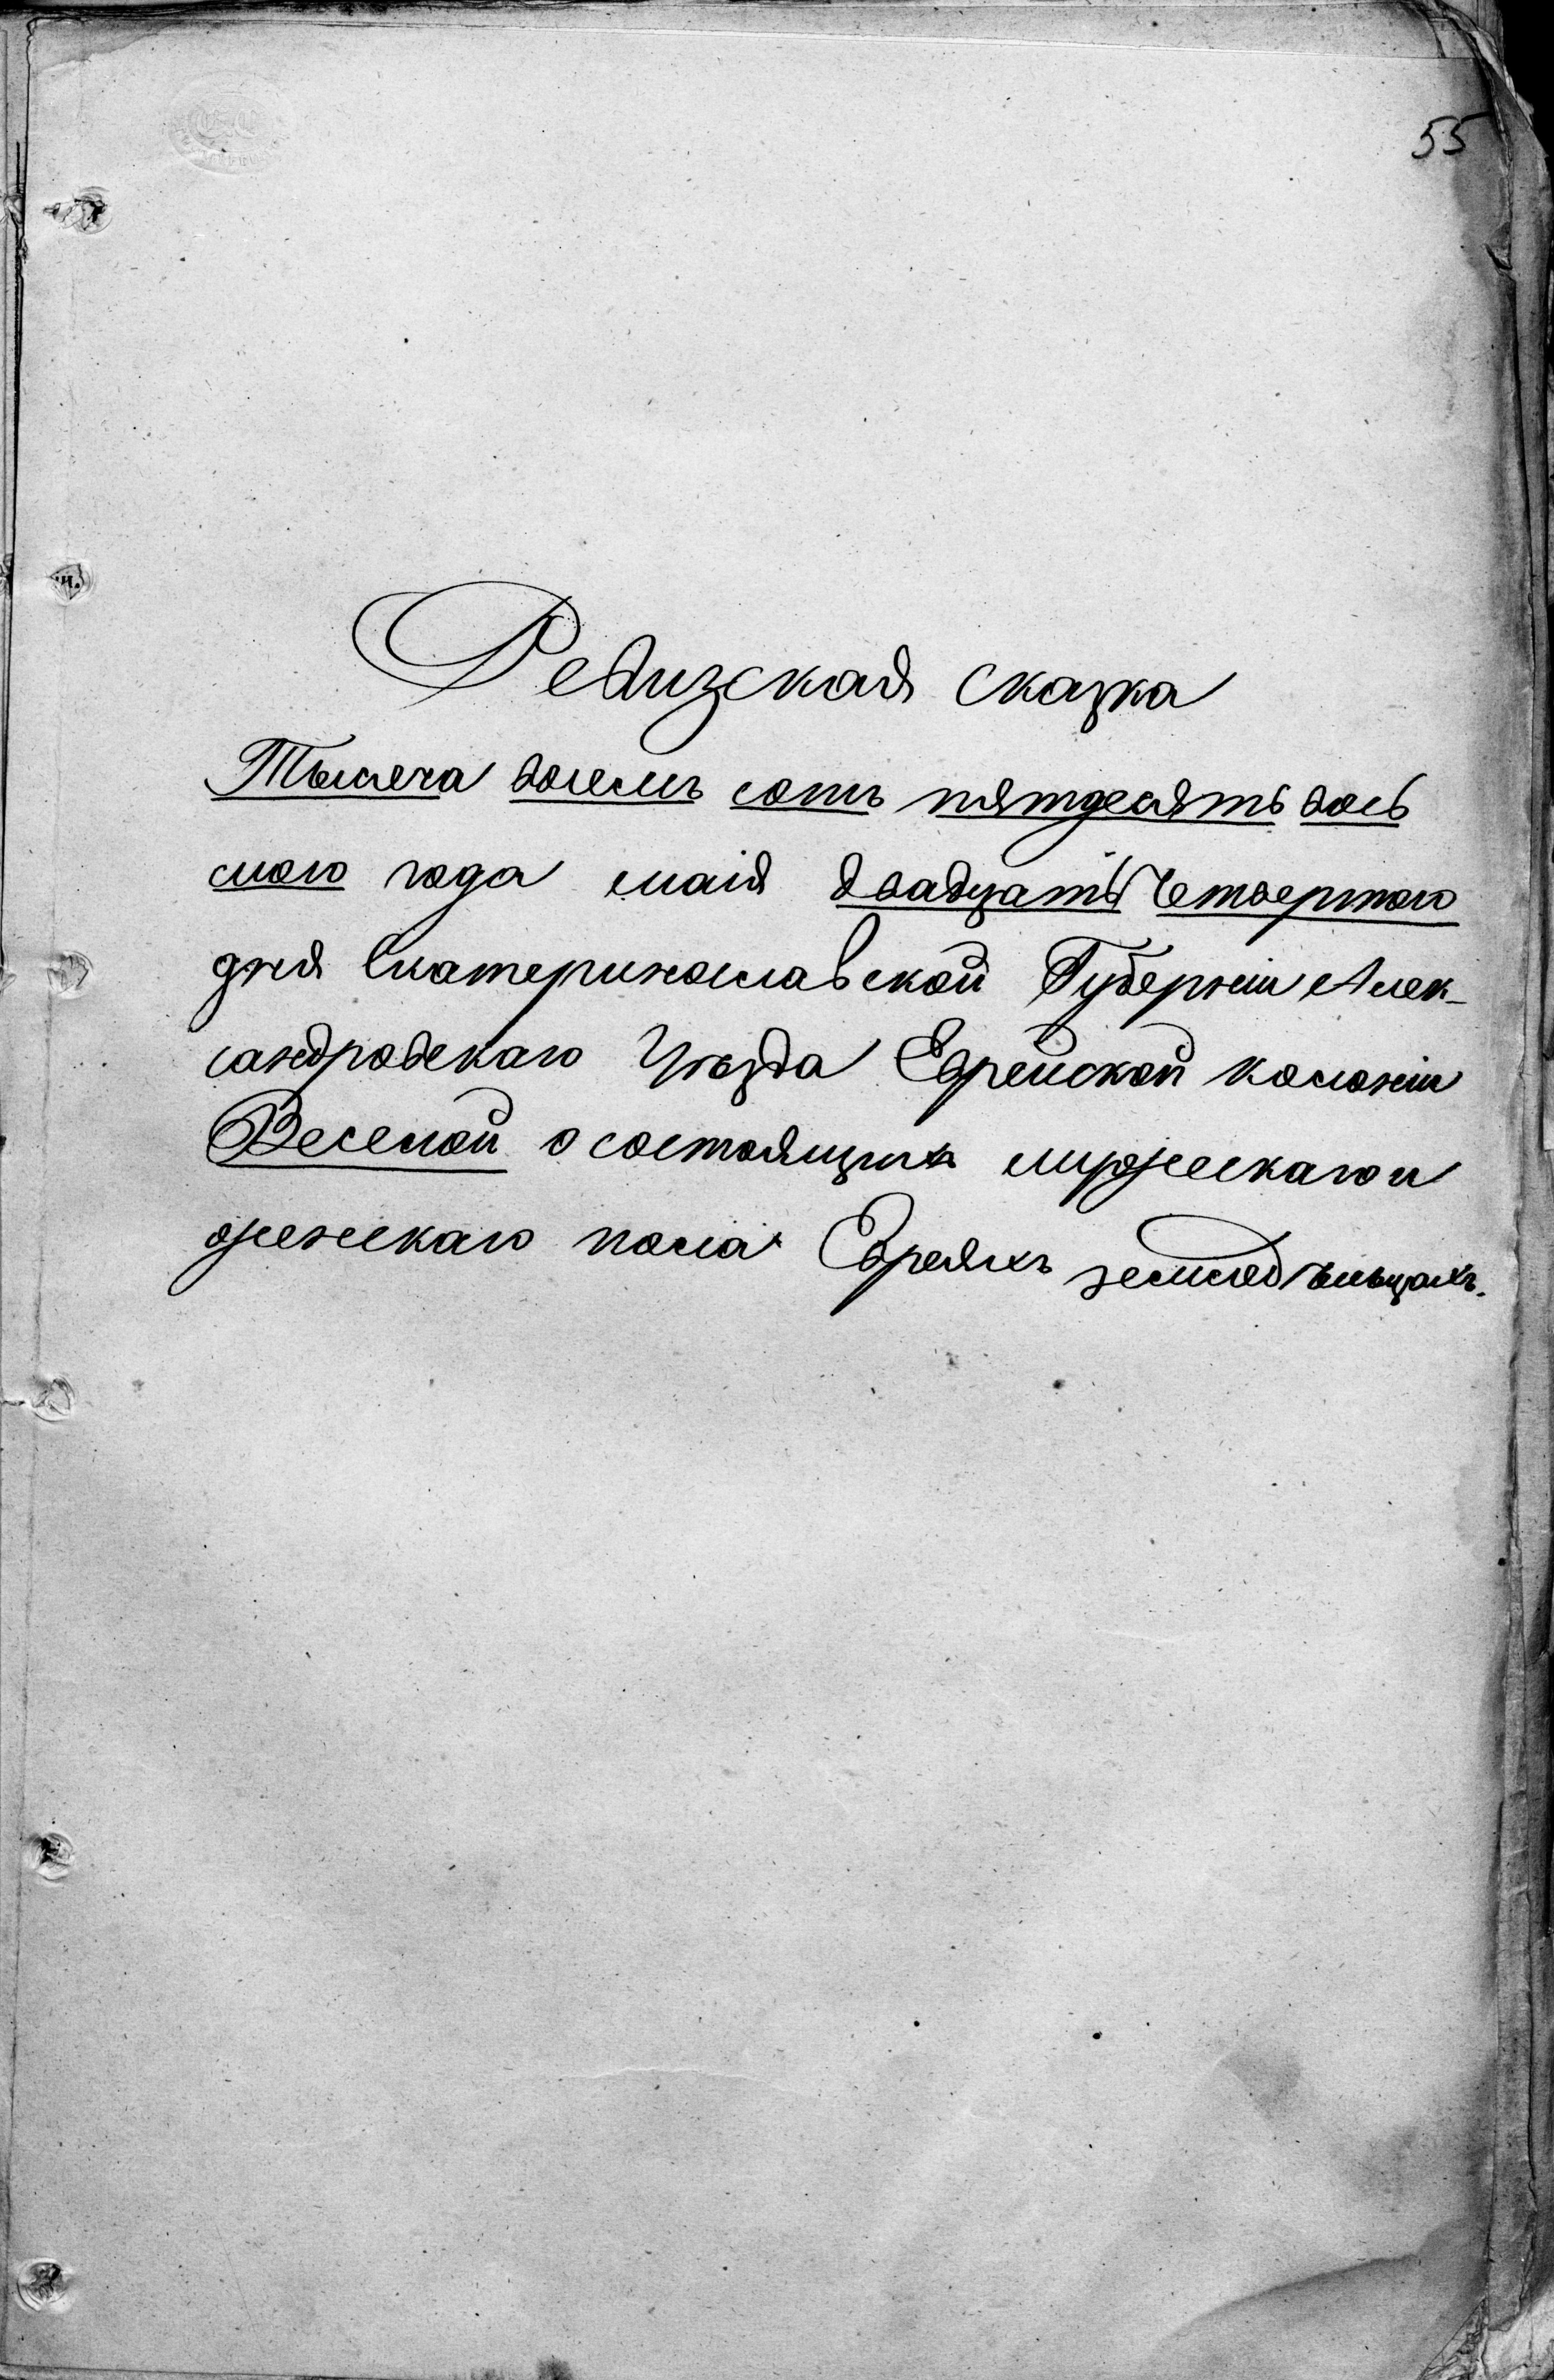 55
Ревизская сказка
Тысяча восемь сотъ пятдесятъ вось
мого года маія двадцать четвертого
дня Екатеринославской Губерніи Алек-
сандровскаго Уѣзда Еврейской колоніи
Веселой о состоящихъ мужескаго и
женскаго пола Евреяхъ земледѣльцахъ.